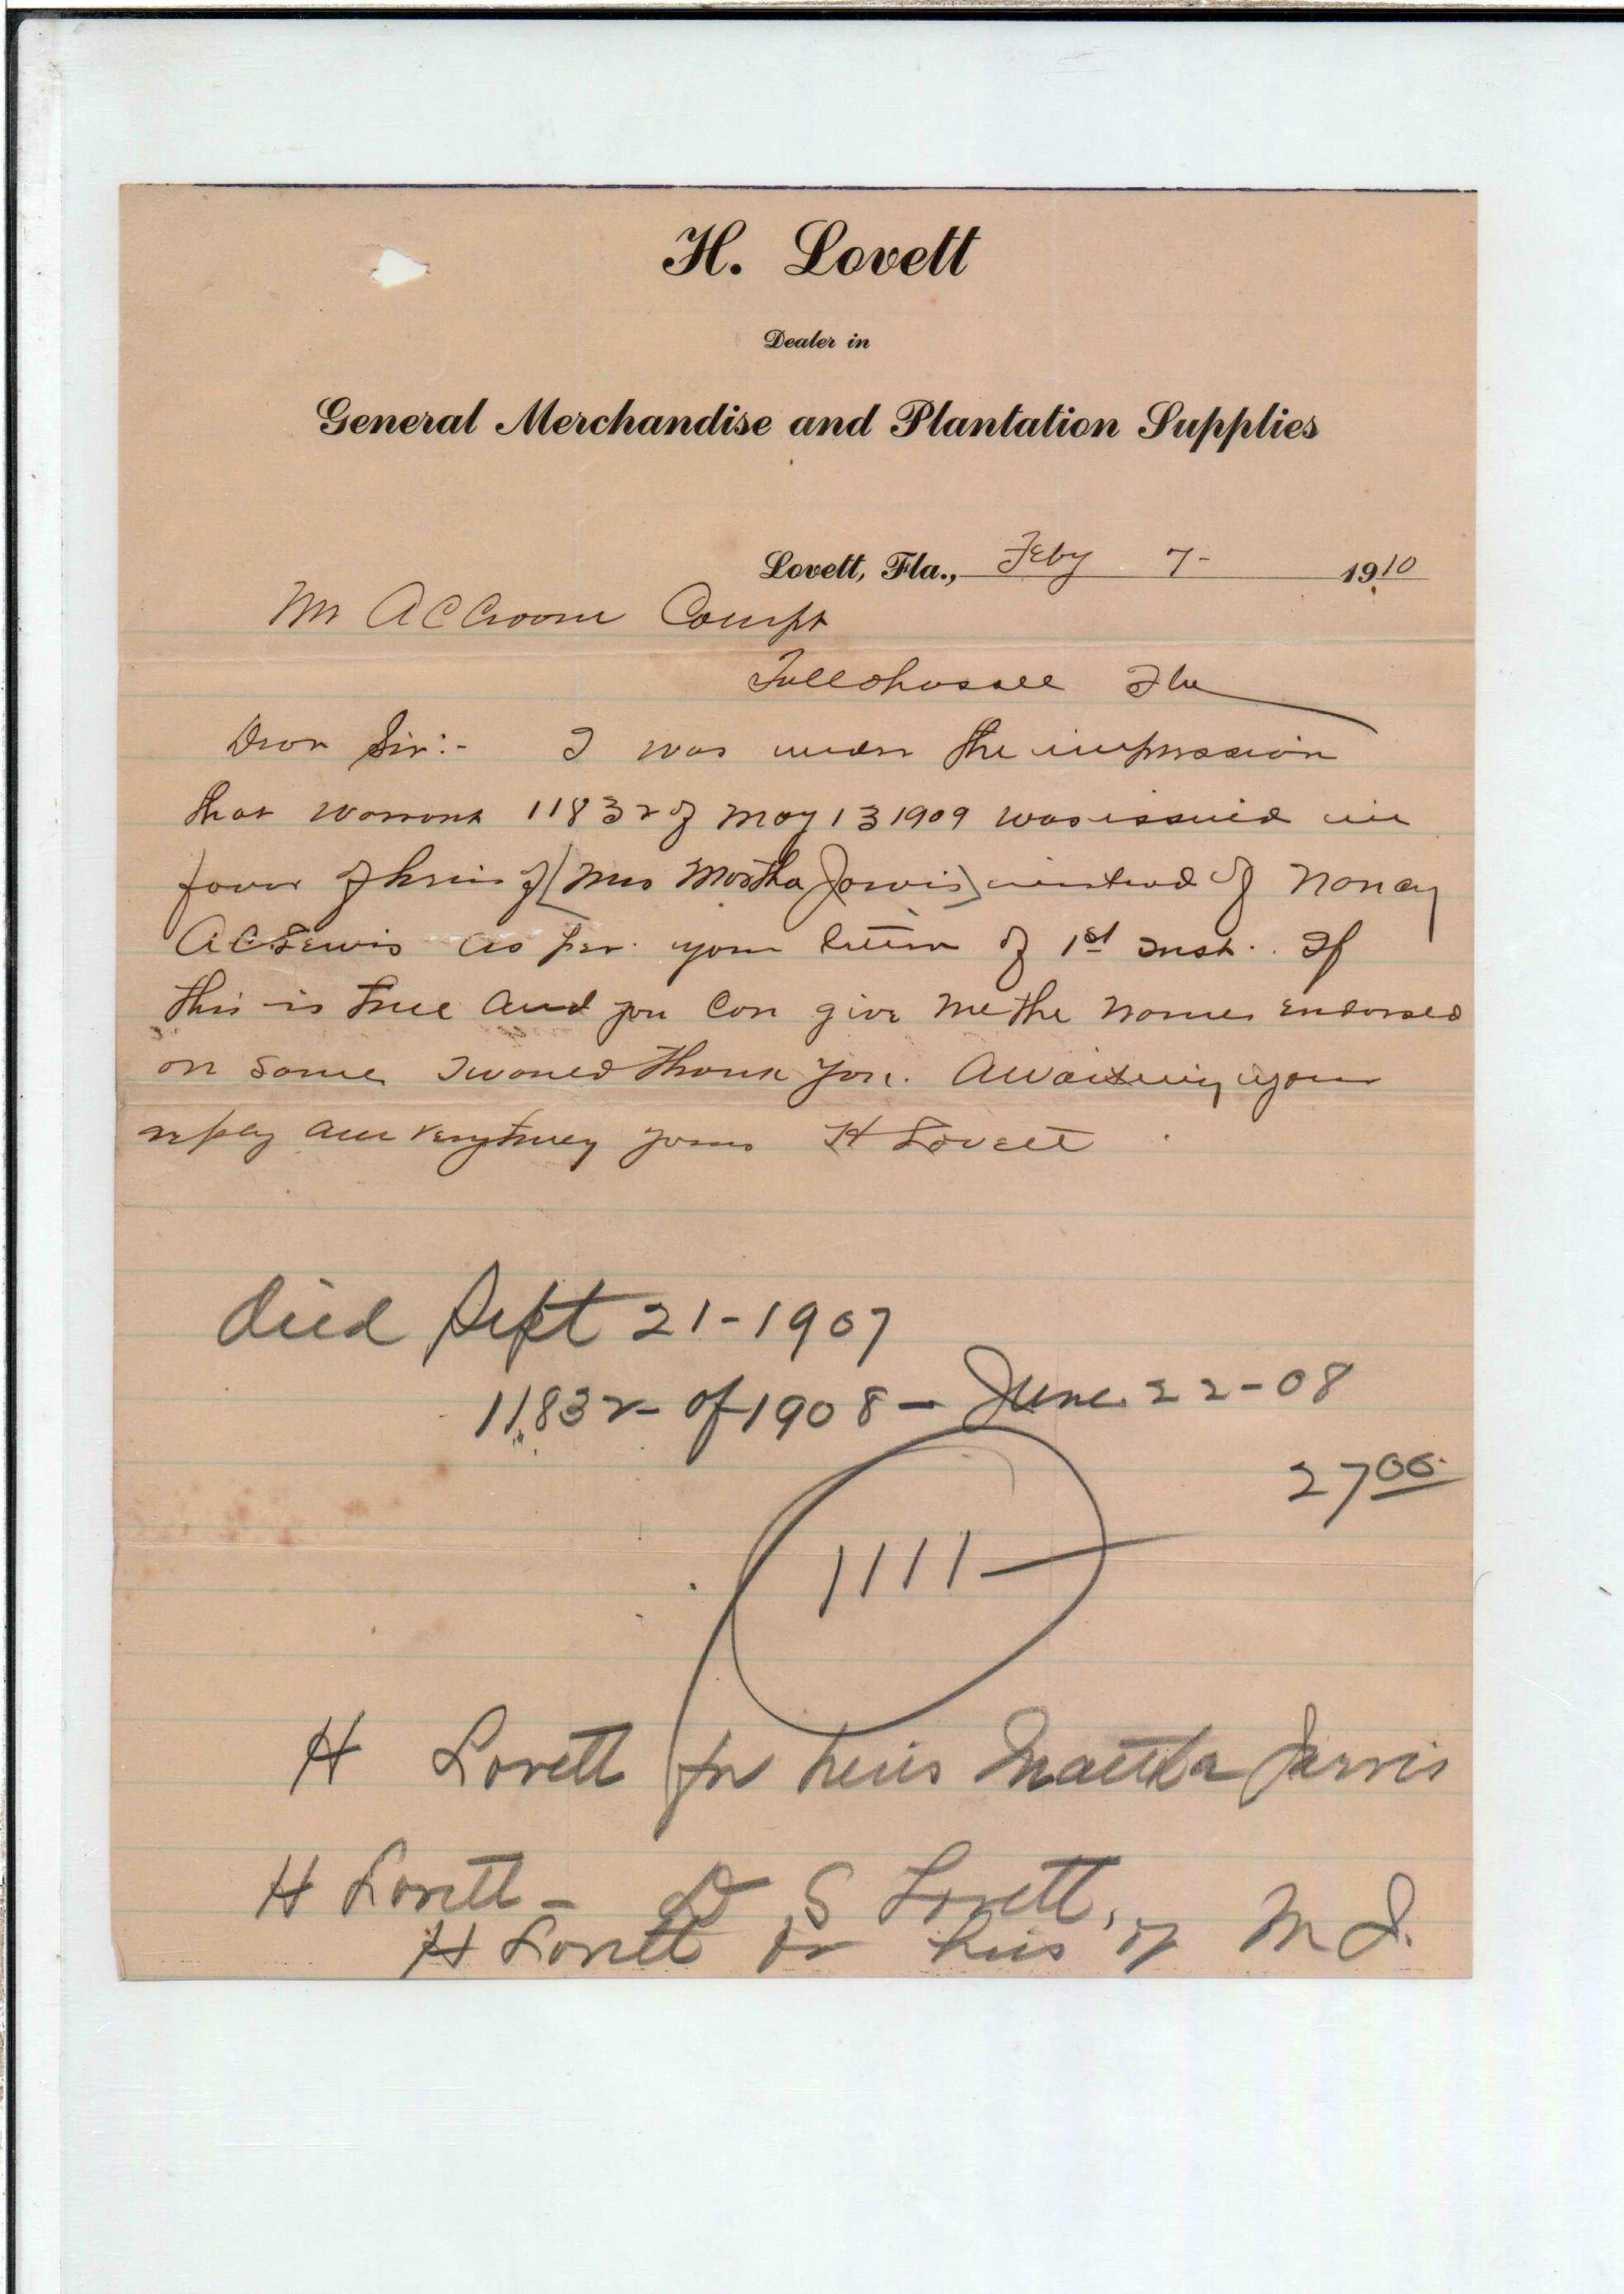 H. Lovett
Dealer in
General Merchandise and Plantation Supplies
Lovett, Fla., Feby 7- 1910
Mr A C Croom Compt
Tallahassee Fla
Dear Sir:- I was under the impression
that warrant 11832 of May 13 1909 was issued in
favor of heirs of (Mrs Martha Jarvis) instead of Nancy
A C Lewis as per your letter of 1st Inst. If
this is true and you can give me the names endorsed
on same I would thank you. Awaiting your
reply am very truly yours H Lovett
died Sept 21-1907
11832- of 1908 - June 22-08
27 00
1111-
H Lovett for heirs Martha Jarvis
H Lovett - D S Lovett,
H Lovett for heirs of M J.